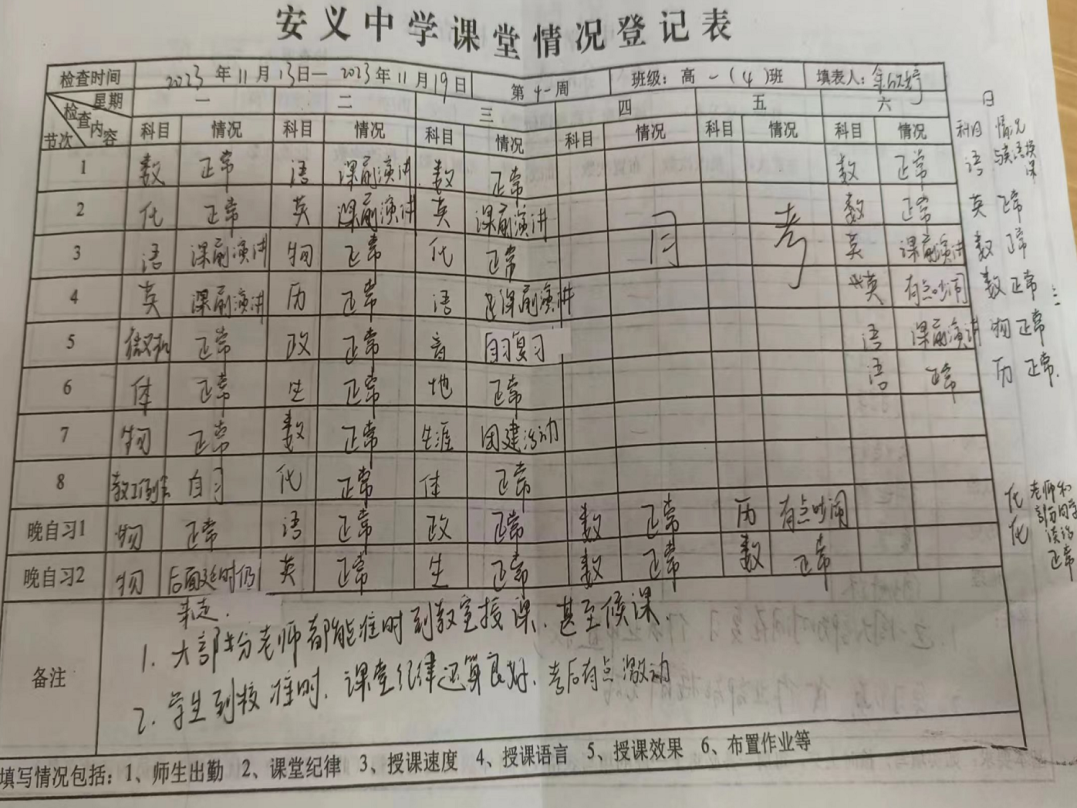 安义中学课堂情况登记表
检查时间 2023年11月13日—2023年11月19日 第十一周 班级：高一（4）班 填表人：
星期 一 二 三 四 五 六 日
检查内容
节次 科目 情况 科目 情况 科目 情况 科目 情况 科目 情况 科目 情况 科目 情况
1 数 正常 语 课前演讲 数 正常 数 正常 语
2 化 正常 英 课前演讲 英 课前演讲 月 考 数 正常 英 正常
3 语 课前演讲 物 正常 化 正常 英 课前演讲 数 正常
4 英 课前演讲 历 正常 语 课前演讲 英 有点吵闹 数 正常
5 微机 正常 政 正常 音 自习复习 语 课前演讲 物 正常
6 体 正常 生 正常 地 正常 语 正常 历 正常.
7 物 正常 数 正常 生涯 团建活动
8 自习 化 正常 体 正常 化
晚自习1 物 正常 语 正常 政 正常 数 正常 历 有点吵闹 化
晚自习2 物 后面延时仍 英 正常 生 正常 数 正常 数 正常 正常
备注
1. 大部分老师都能准时到教室授课，甚至候课
2. 学生到校准时，课堂纪律还算良好，考后有点激动
填写情况包括：1、师生出勤 2、课堂纪律 3、授课速度 4、授课语言 5、授课效果 6、布置作业等